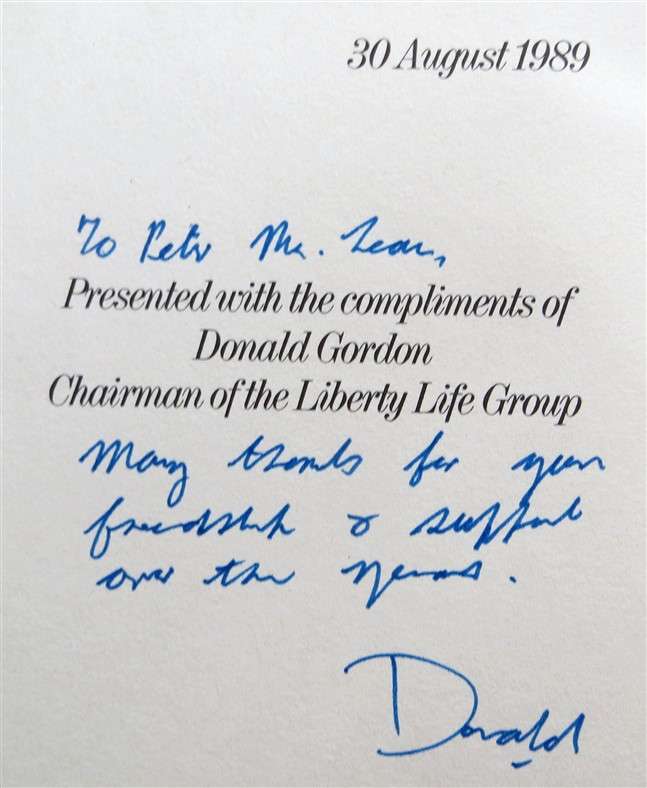 30 August 1989
To Peter Mc. Lean,
Presented with the compliments of
Donald Gordon
Chairman of the Liberty Life Group
Many thanks for your
friendship & support
over the years.
Donald